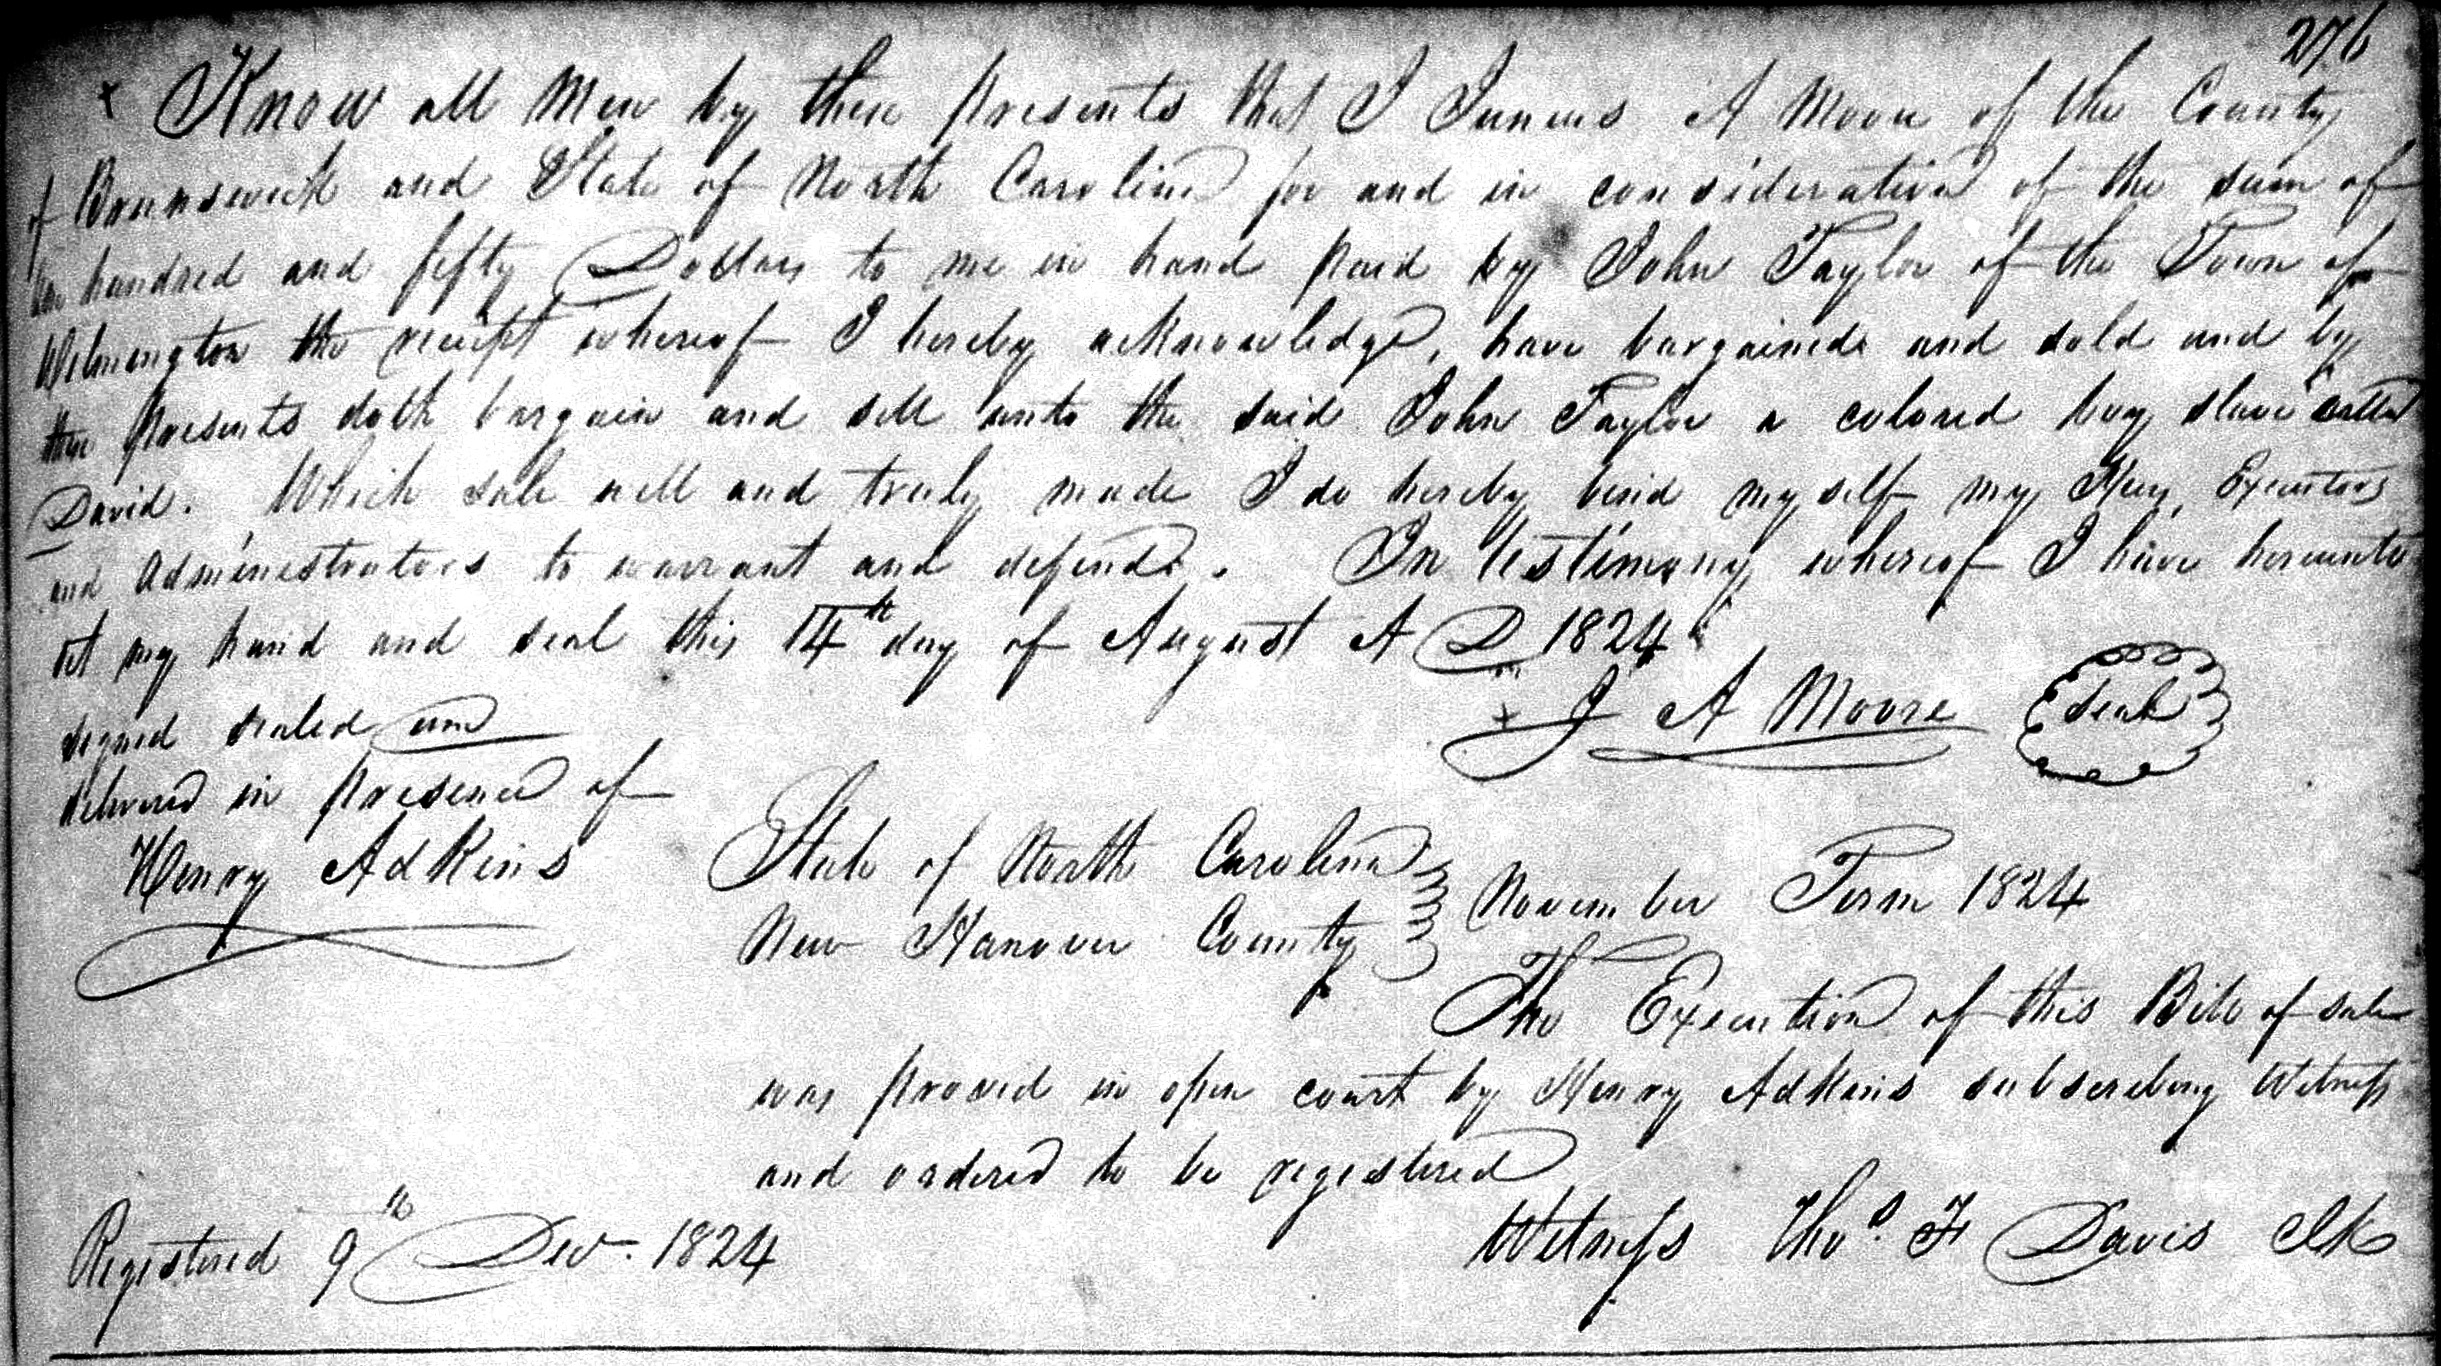 276
x Know all Men by these presents that I Junius A Moore of the County
of Brunswick and State of North Carolina for and in consideration of the sum of
hundred and fifty Dollars to me in hand paid by John Taylor of the Town of
Wilmington the receipt whereof I hereby acknowledge, have bargained and sold and by
these presents doth bargain and sell unto the said John Taylor a colored boy slave called
David. Which sale well and truly made I do hereby bind myself my Heirs, Executors
and Administrators to warrant and defend. In testimony whereof I have hereunto
set my hand and seal this 14th day of August A D 1824
x J A Moore Seal
signed sealed and
delivered in presence of
Henry Adkins
State of North Carolina
New Hanover County
November Term 1824
The Execution of this Bill of sale
was proved in open court by Henry Adkins subscribing Witness
and ordered to be registered
Witness Thos. F Davis Clk
Registered 9th Decr. 1824